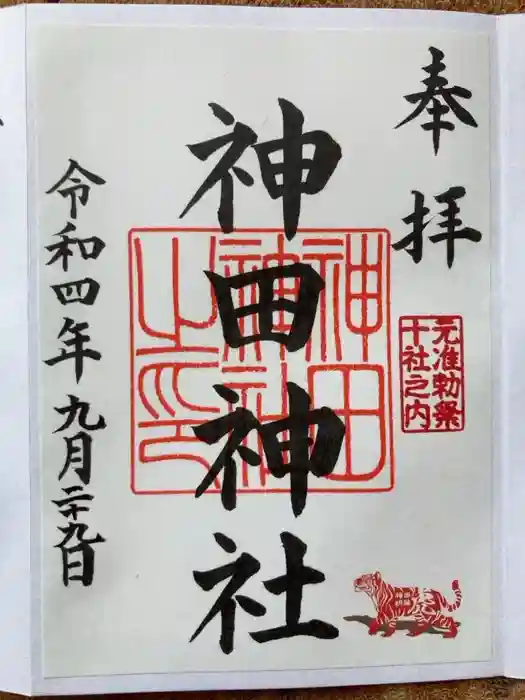 奉拝
元准勅祭
十社之内
神田神社
神田
神社
之印
令和四年九月二十九日